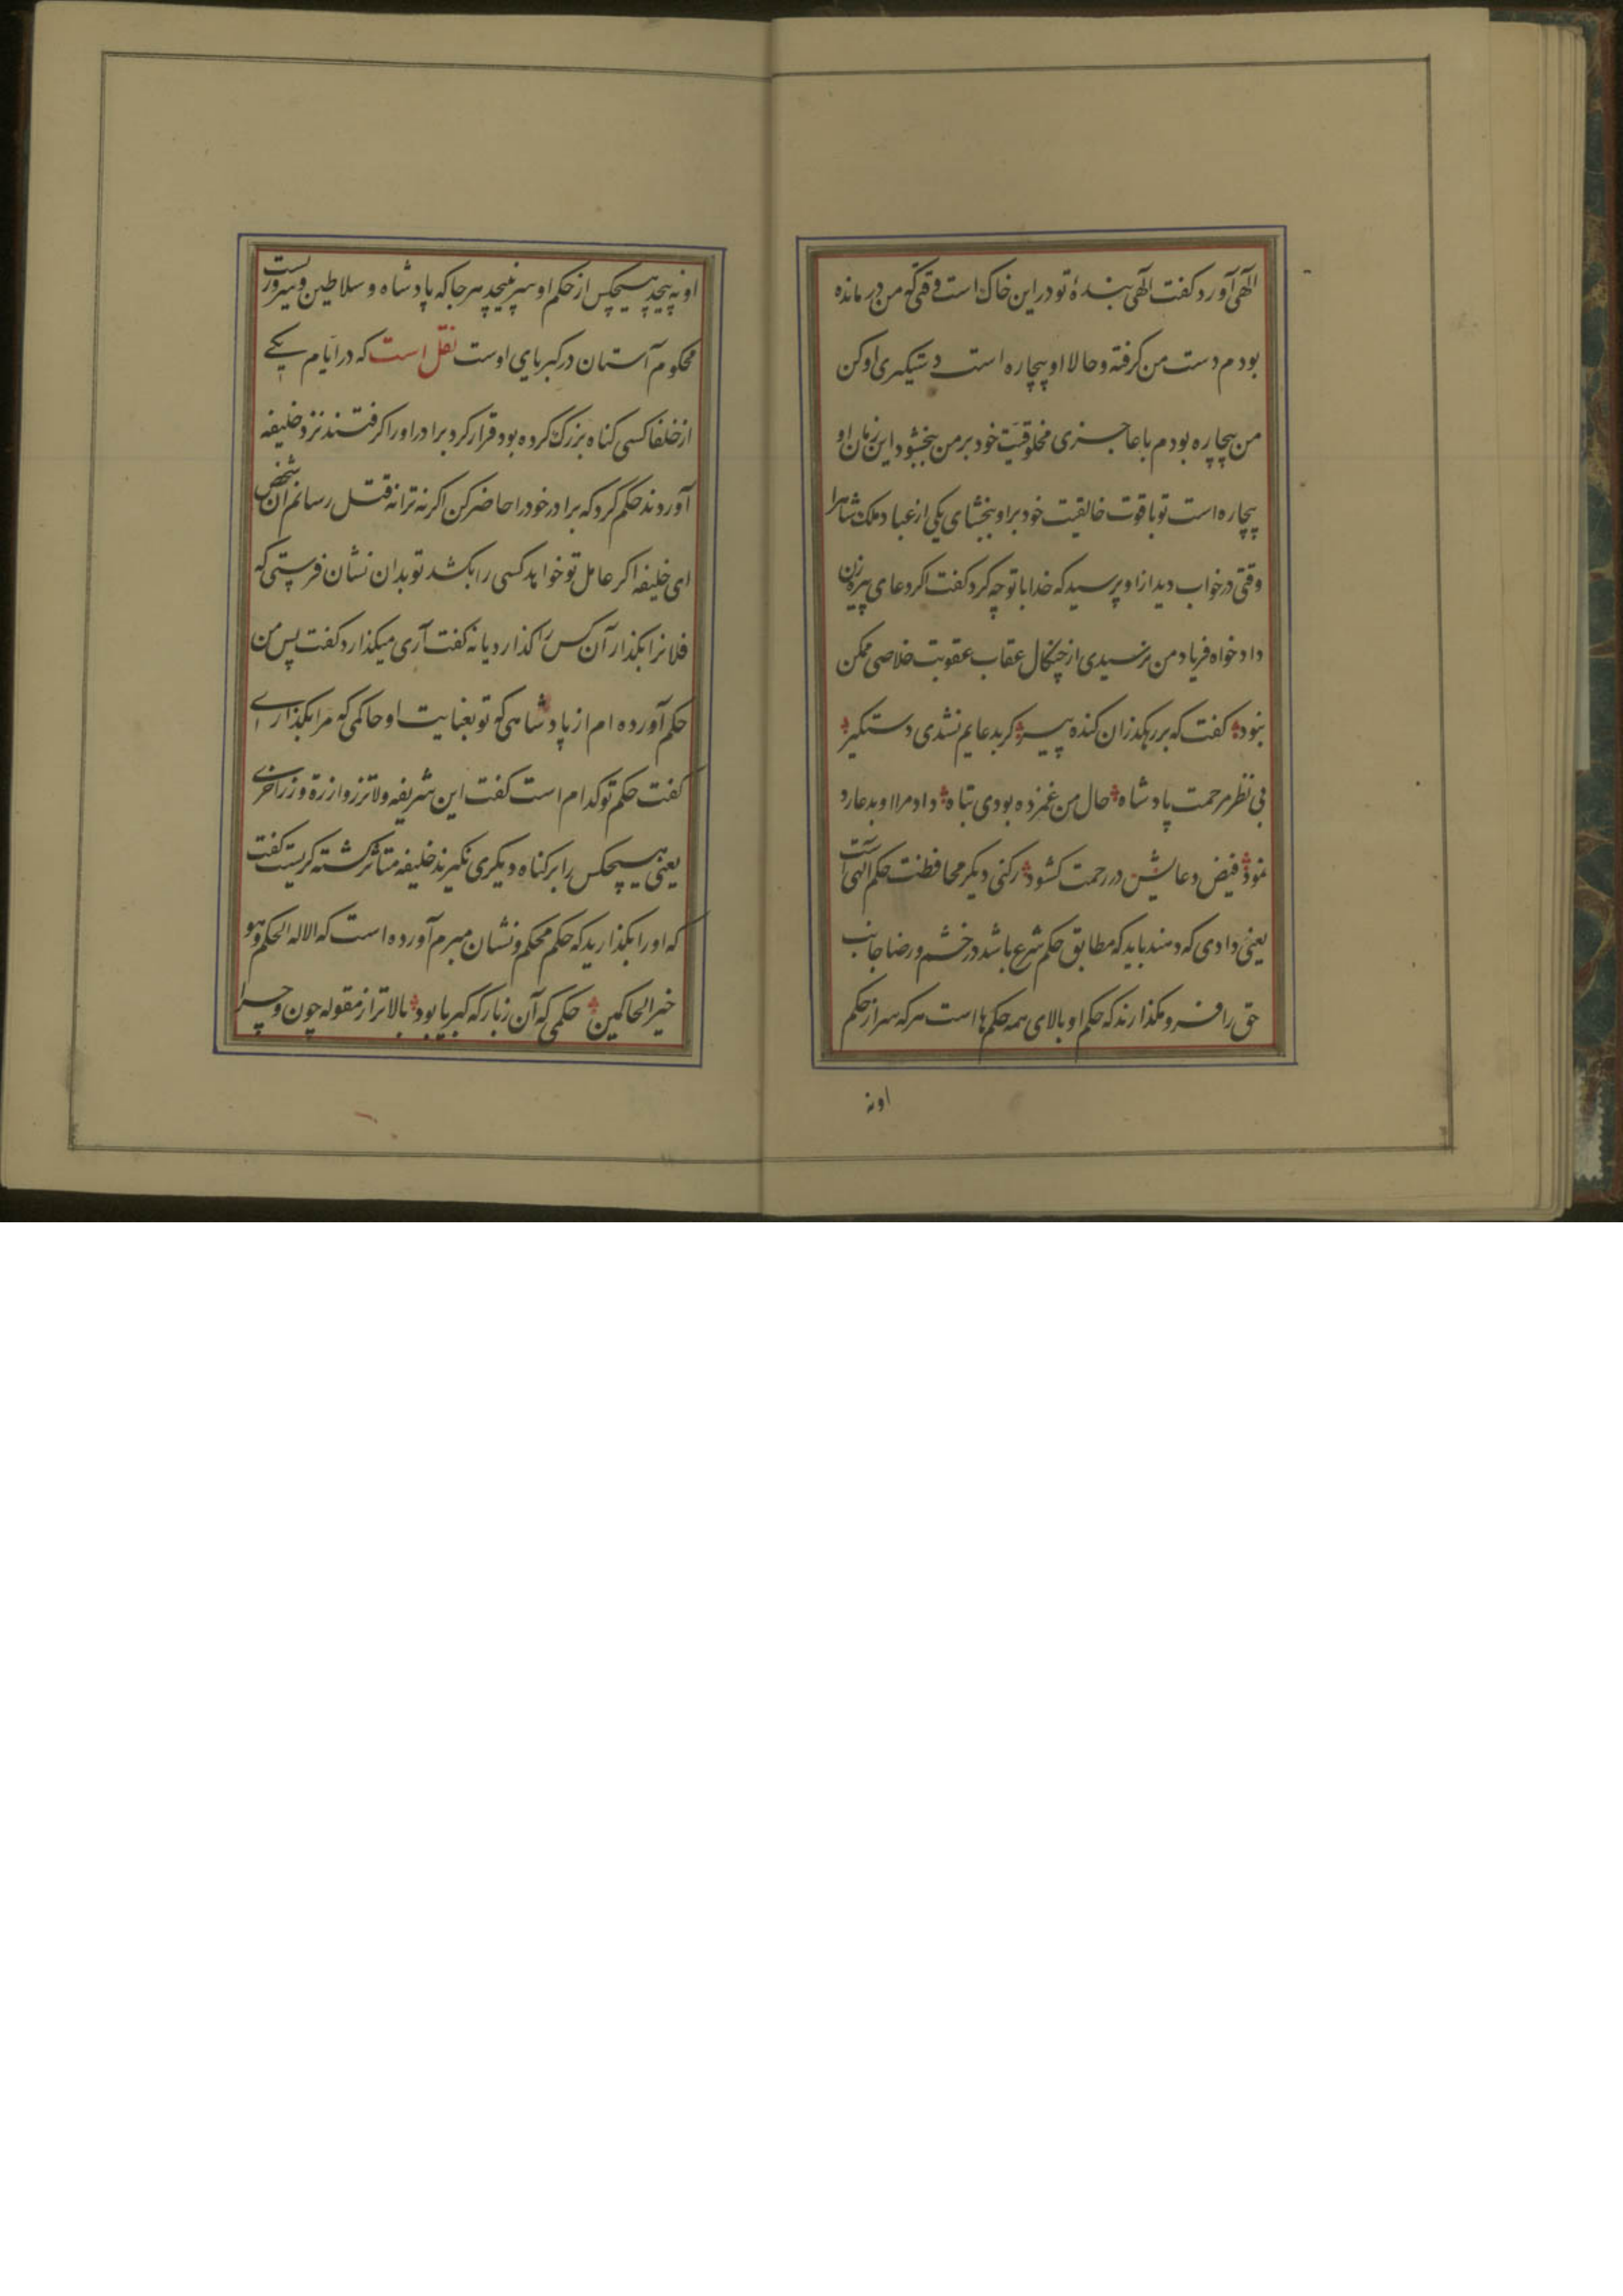 الهی آورد کفت الهی بندهٔ تو در این خاک است وقتی که من در مانده
بودم دست من کرفته و حالا او بیچاره است دستیکیری او کن
من بیچاره بودم با عاجزی مخلوقیت خود بر من ببخشود این زمان او
بیچاره است تو با قوت خالقیت خود بر او ببخشای یکی از عباد ملک شاه را
وقتی در خواب دید از او پرسید که خدا با تو چه کرد کفت اکر دعای پیره زن
داد خواه فریاد من نرسیدی از چنکال عقاب عقوبت خلاصی ممکن
نبود کفت که بر رهکذر آن کنده پیر کر بدعایم نشدی دستکیر
بی نظر مرحمت پادشاه حال من غمزده بودی تباه داد مرا او بدعا رد
نمود فیض دعایش در رحمت کشود رکنی دیکر محافظت حکم الهی است
یعنی دادی که دهند باید که مطابق حکم شرع باشد در خشم و رضا جانب
حق را فرو مکذارند که حکم او بالای همه حکم ها است هر که سر از حکم
اونه
اونه پیچد هیچکس از حکم او سر نپیچد هر جا که پادشاه و سلاطین و سرورست
محکوم آستان در کبریای اوست نقل است که در ایام یکے
از خلفا کسی کناه بزرک کرده بود قرار کرد برادر او را کرفتند نزد خلیفه
آوردند حکم کرد که برادر خود را حاضر کن اکر نه ترا نه قتل رسانم آن شخص
ای خلیفه اکر عامل تو خواهد کسی را بکشد تو بدان نشان فرستی که
فلانرا بکذار آن کس را کذارد یا نه کفت آری میکذارد کفت پس من
حکم آورده ام از پادشاهی که تو بعنایت او حاکمی که مرا بکذارے
کفت حکم تو کدام است کفت این شریفه ولا تزر وازرة وزر اخرے
یعنی هیچکس را بر کناه دیکری نکیرند خلیفه متاثر کشته کریست کفت
که او را بکذارید که حکم محکم و نشان مبرم آورده است که الا له الحکم و هو
خیر الحاکمین حکمی که آن زبارکه کبریا بود بالاتر از مقوله چون و چرا